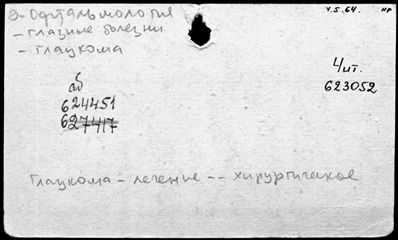 Э-Офтальмология
- глазные болезни
- глаукома
4.5.64. НР
Чит.
623052
аб
624451
627417
Глаукома - лечение -- хирургическое